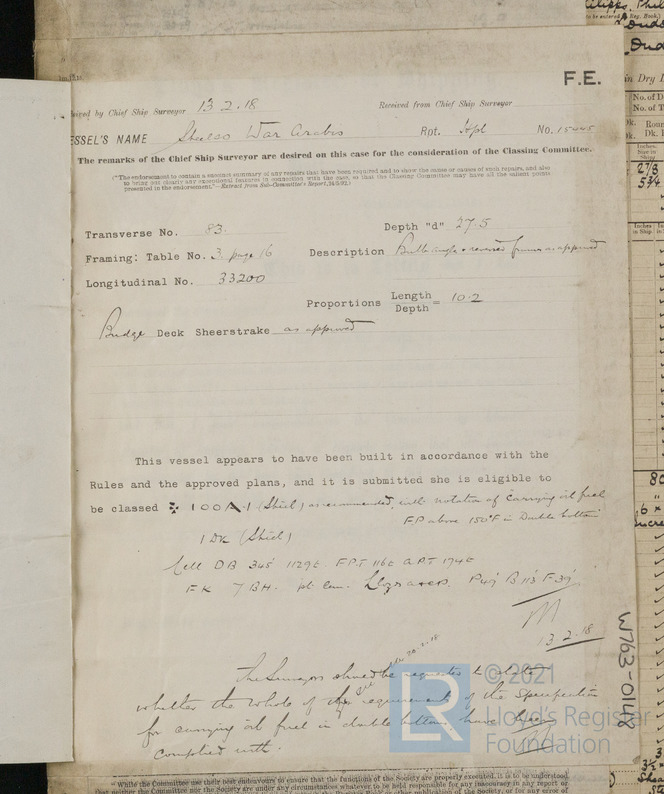 F.E.
ived by Chief Ship Surveyor 13.2.18 Received from Chief Ship Surveyor
ESSEL'S NAME Steelso War Arabis Rpt. Hpl No. 15445
The remarks of the Chief Ship Surveyor are desired on this case for the consideration of the Classing Committee.
("The endorsement to contain a succinct summary of any repairs that have been required and to show the cause or causes of such repairs, and also
to bring out clearly any exceptional features in connection with the case, so that the Classing Committee may have all the salient points
presented in the endorsement."—Extract from Sub-Committee's Report,
Transverse No. 83. Depth "d" 27.5
Framing: Table No. 3 page 16 Description Bulb angle & reversed frames as approved
Longitudinal No. 33200
Proportions Length
Depth = 10.2
Bridge Deck Sheerstrake as approved
This vessel appears to have been built in accordance with the
Rules and the approved plans, and it is submitted she is eligible to
be classed 100A1 (Shel) as recommended, with notation of Carrying oil fuel
FP above 150°F in Double bottom
1 DK (Shel)
Cell DB 345' 1129t. FPT 116t APT 174t
FK 7BH. Lloyds A&CP. P 49' B 113' F 39'
13.2.18
The Surveyors should be requested to state
whether the whole of the requirements of the Specification
for carrying oil fuel in double bottoms have been
complied with.
W763-0148
© 2021
LR
Lloyd's Register
Foundation
While the Committee use their best endeavours to ensure that the functions of the Society are properly executed, it is to be understood
that neither the Committee nor the Society are under any circumstances whatever to be held responsible for any inaccuracy in any report or
in Dry
No. of
Inches
27/8
5 3/4
80